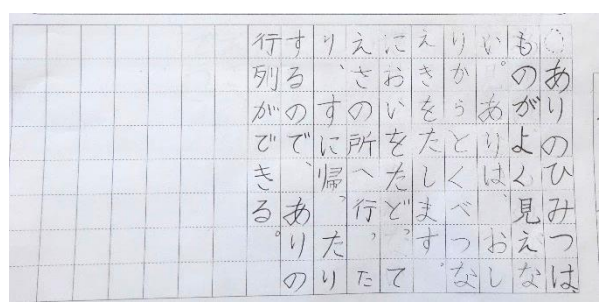 ありのひみつは、
ものがよく見えな
い。ありは、おし
りからとくべつな
えきをたします。
においをたどって
えさの所へ行った
り、すに帰ったり
するので、ありの
行列ができる。